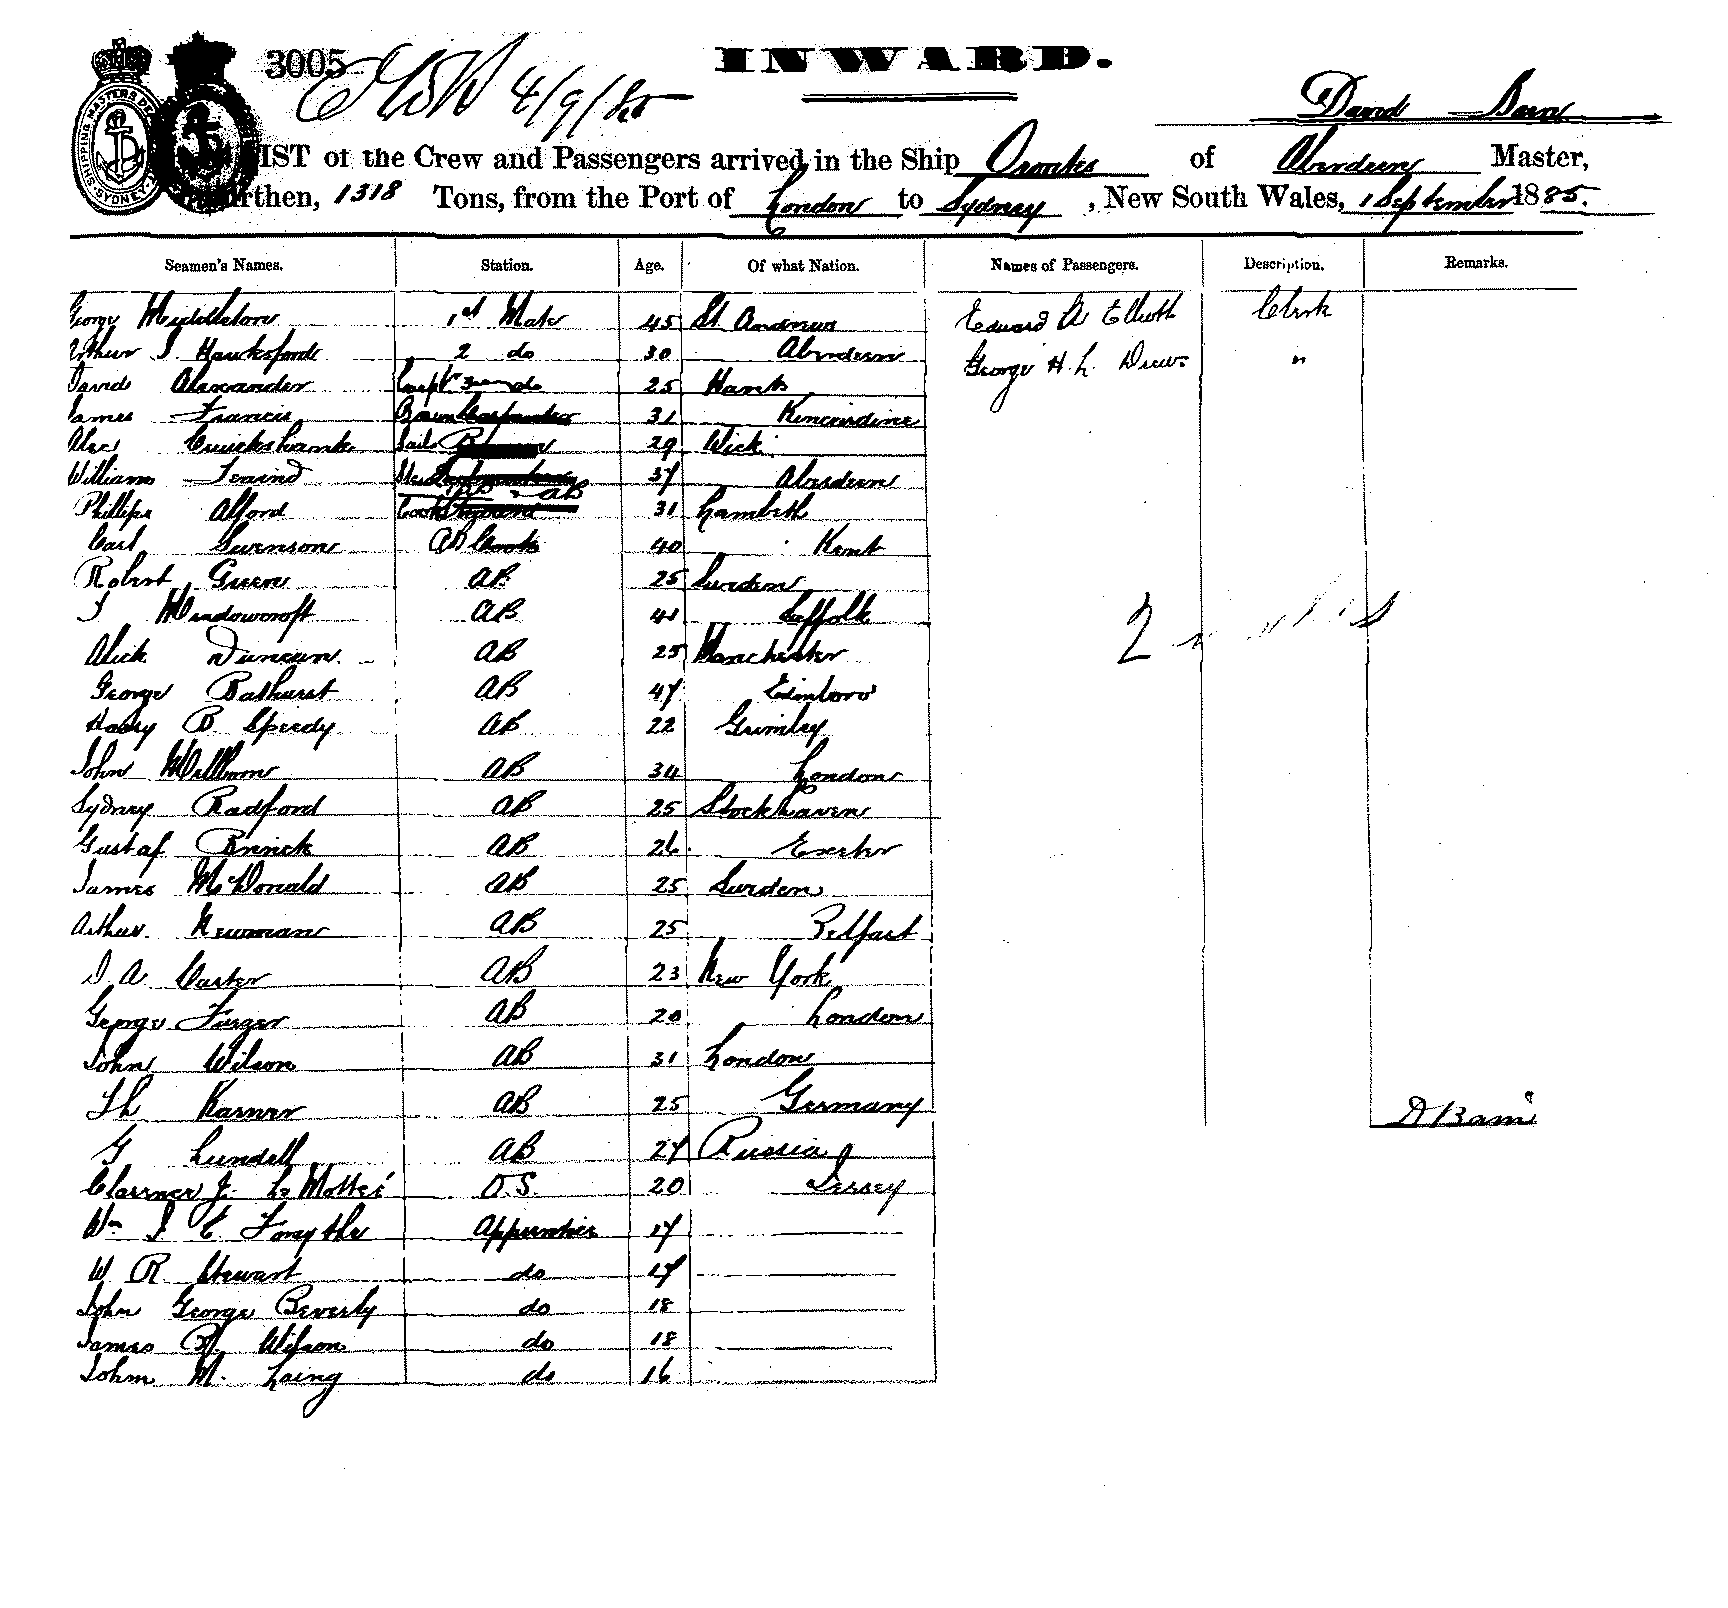 3005 4/9/85
INWARD.
David Bain
LIST of the Crew and Passengers arrived in the Ship Orontes of Aberdeen Master,
Burthen, 1318 Tons, from the Port of London to Sydney, New South Wales, 1 September 1885.
Seamen's Names. Station. Age. Of what Nation. Names of Passengers. Description. Remarks.
George Middleton 1st Mate 45 St Andrews Edward A Elliott Clerk
Arthur J Hawksford 2 do 30 Aberdeen George H. L. Drew "
David Alexander do 25 Hants
James Francis Carpenter 31 Kincardine
Alex Cruickshank Sail 29 Wick
William 37 Aberdeen
Phillip Alford Cook 31 Lambeth
Carl Swenson AB Cook 40 Kent
Robert Green AB 25 Sweden
J Meadowcroft AB 41 Suffolk
Alick Duncan AB 25 Manchester
George Bathurst AB 47 Edinboro
Harry B Speedy AB 22 Grimley
John Millbom AB 34 London
Sydney Radford AB 25 Stockhaven
Gustaf Brinck AB 26 Exeter
James McDonald AB 25 Sweden
Arthur Newman AB 25 Belfast
D A Carter AB 23 New York
George AB 20 London
John Wilson AB 31 London
Th Karner AB 25 Germany
D Bain
G Lundell AB 27 Russia
J. Le Mottee O.S. 20 Jersey
Wm J E Forsythe Apprentice 17
W R Stewart do 17
John George Beverly do 18
James R. Wilson do 18
John M. Laing do 16